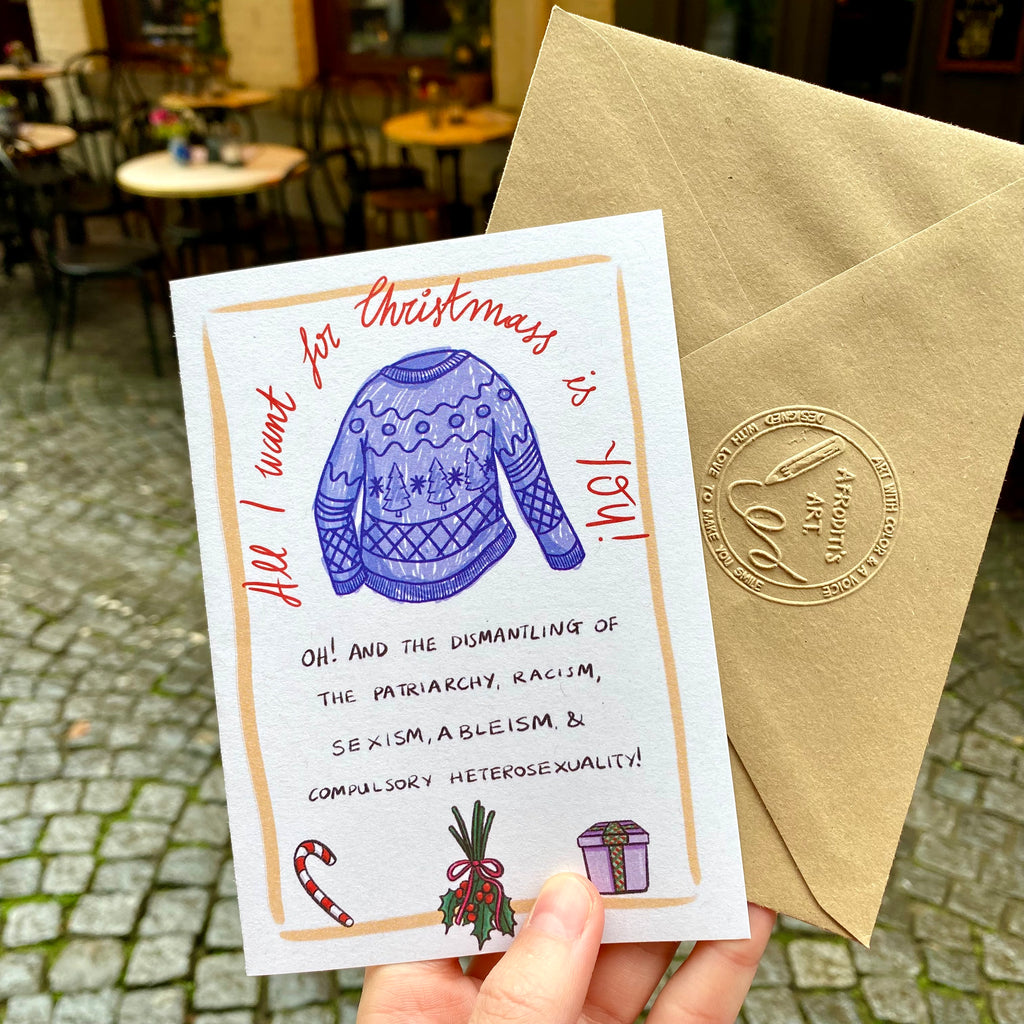 All I want for Christmass is YOU!
OH! AND THE DISMANTLING OF
THE PATRIARCHY, RACISM,
SEXISM, ABLEISM, &
COMPULSORY HETEROSEXUALITY!
AFRODITI'S
ART
ART WITH COLOR & A VOICE
DESIGNED WITH LOVE TO MAKE YOU SMILE